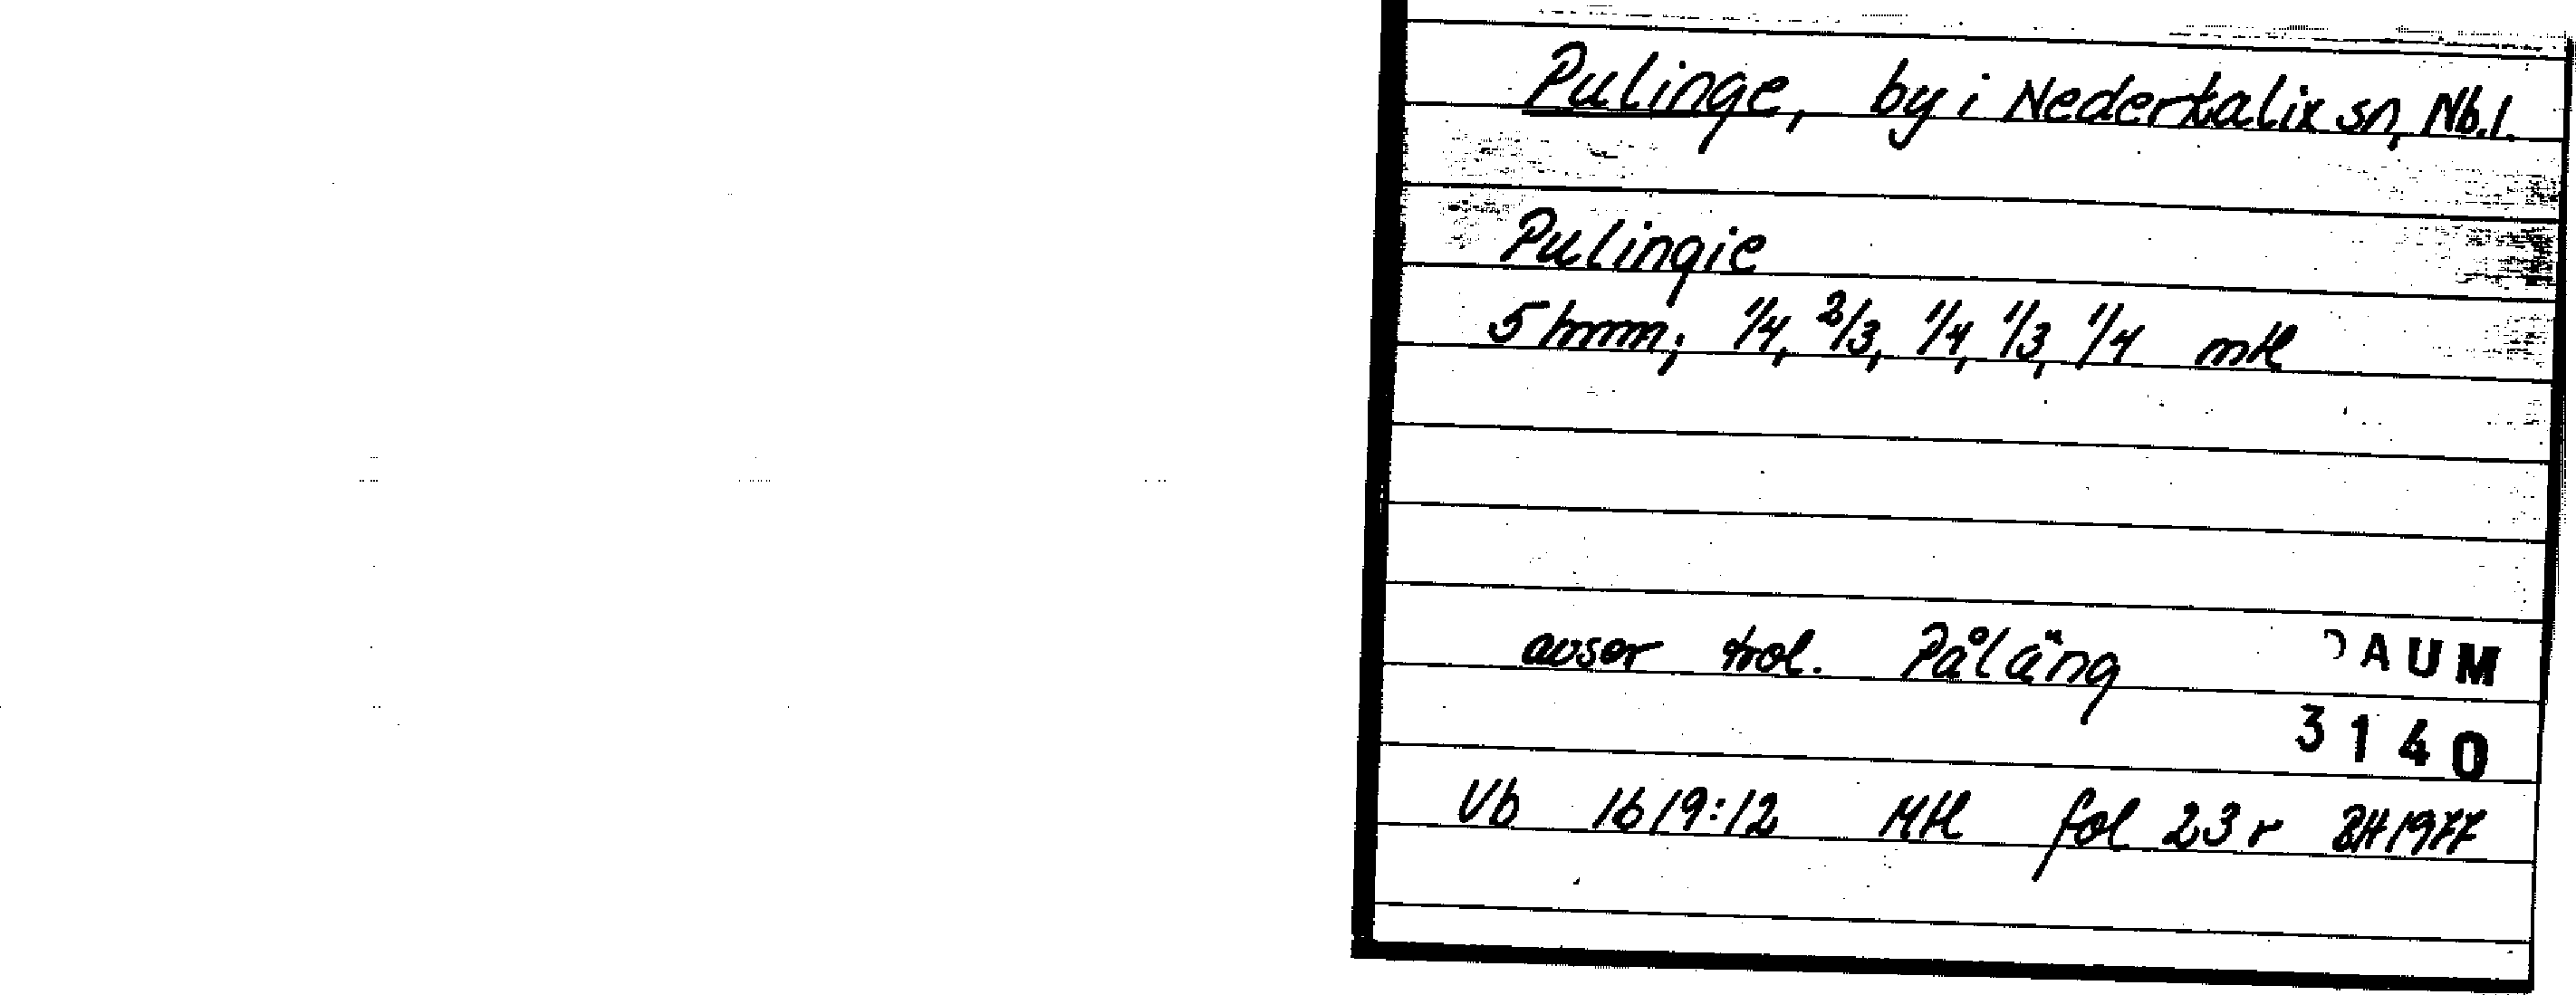 Pulinge, by i Nederkalix sn, Nb.l.
Pulingie
5 hmm; 1/4, 2/3, 1/4, 1/3, 1/4 mtl
avser trol. Påläng
DAUM
3140
Vb 1619:12 Mtl fol 23 r BH 1977